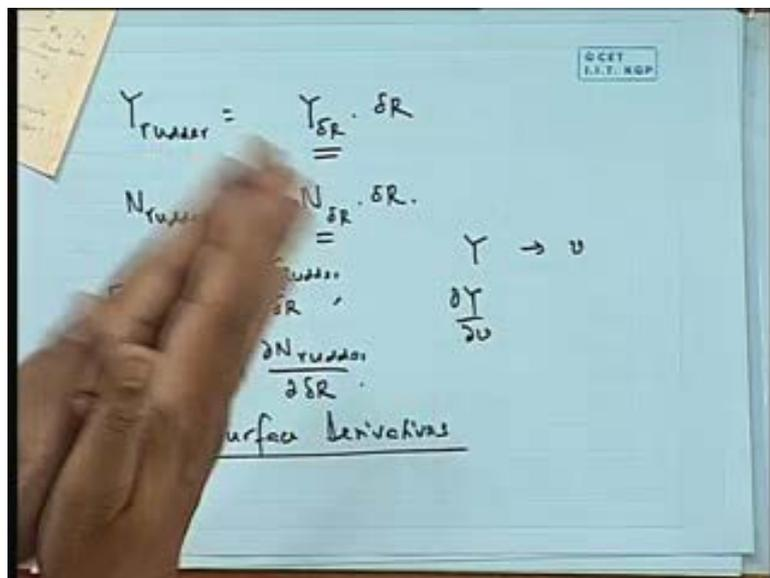 © CET
I.I.T. KGP
Y_rudder = Y_δR . δR
N_rudder N_δR . δR.
Y → υ
rudder
δR ,
∂Y
∂υ
∂N_rudder
∂ δR .
urface Derivatives